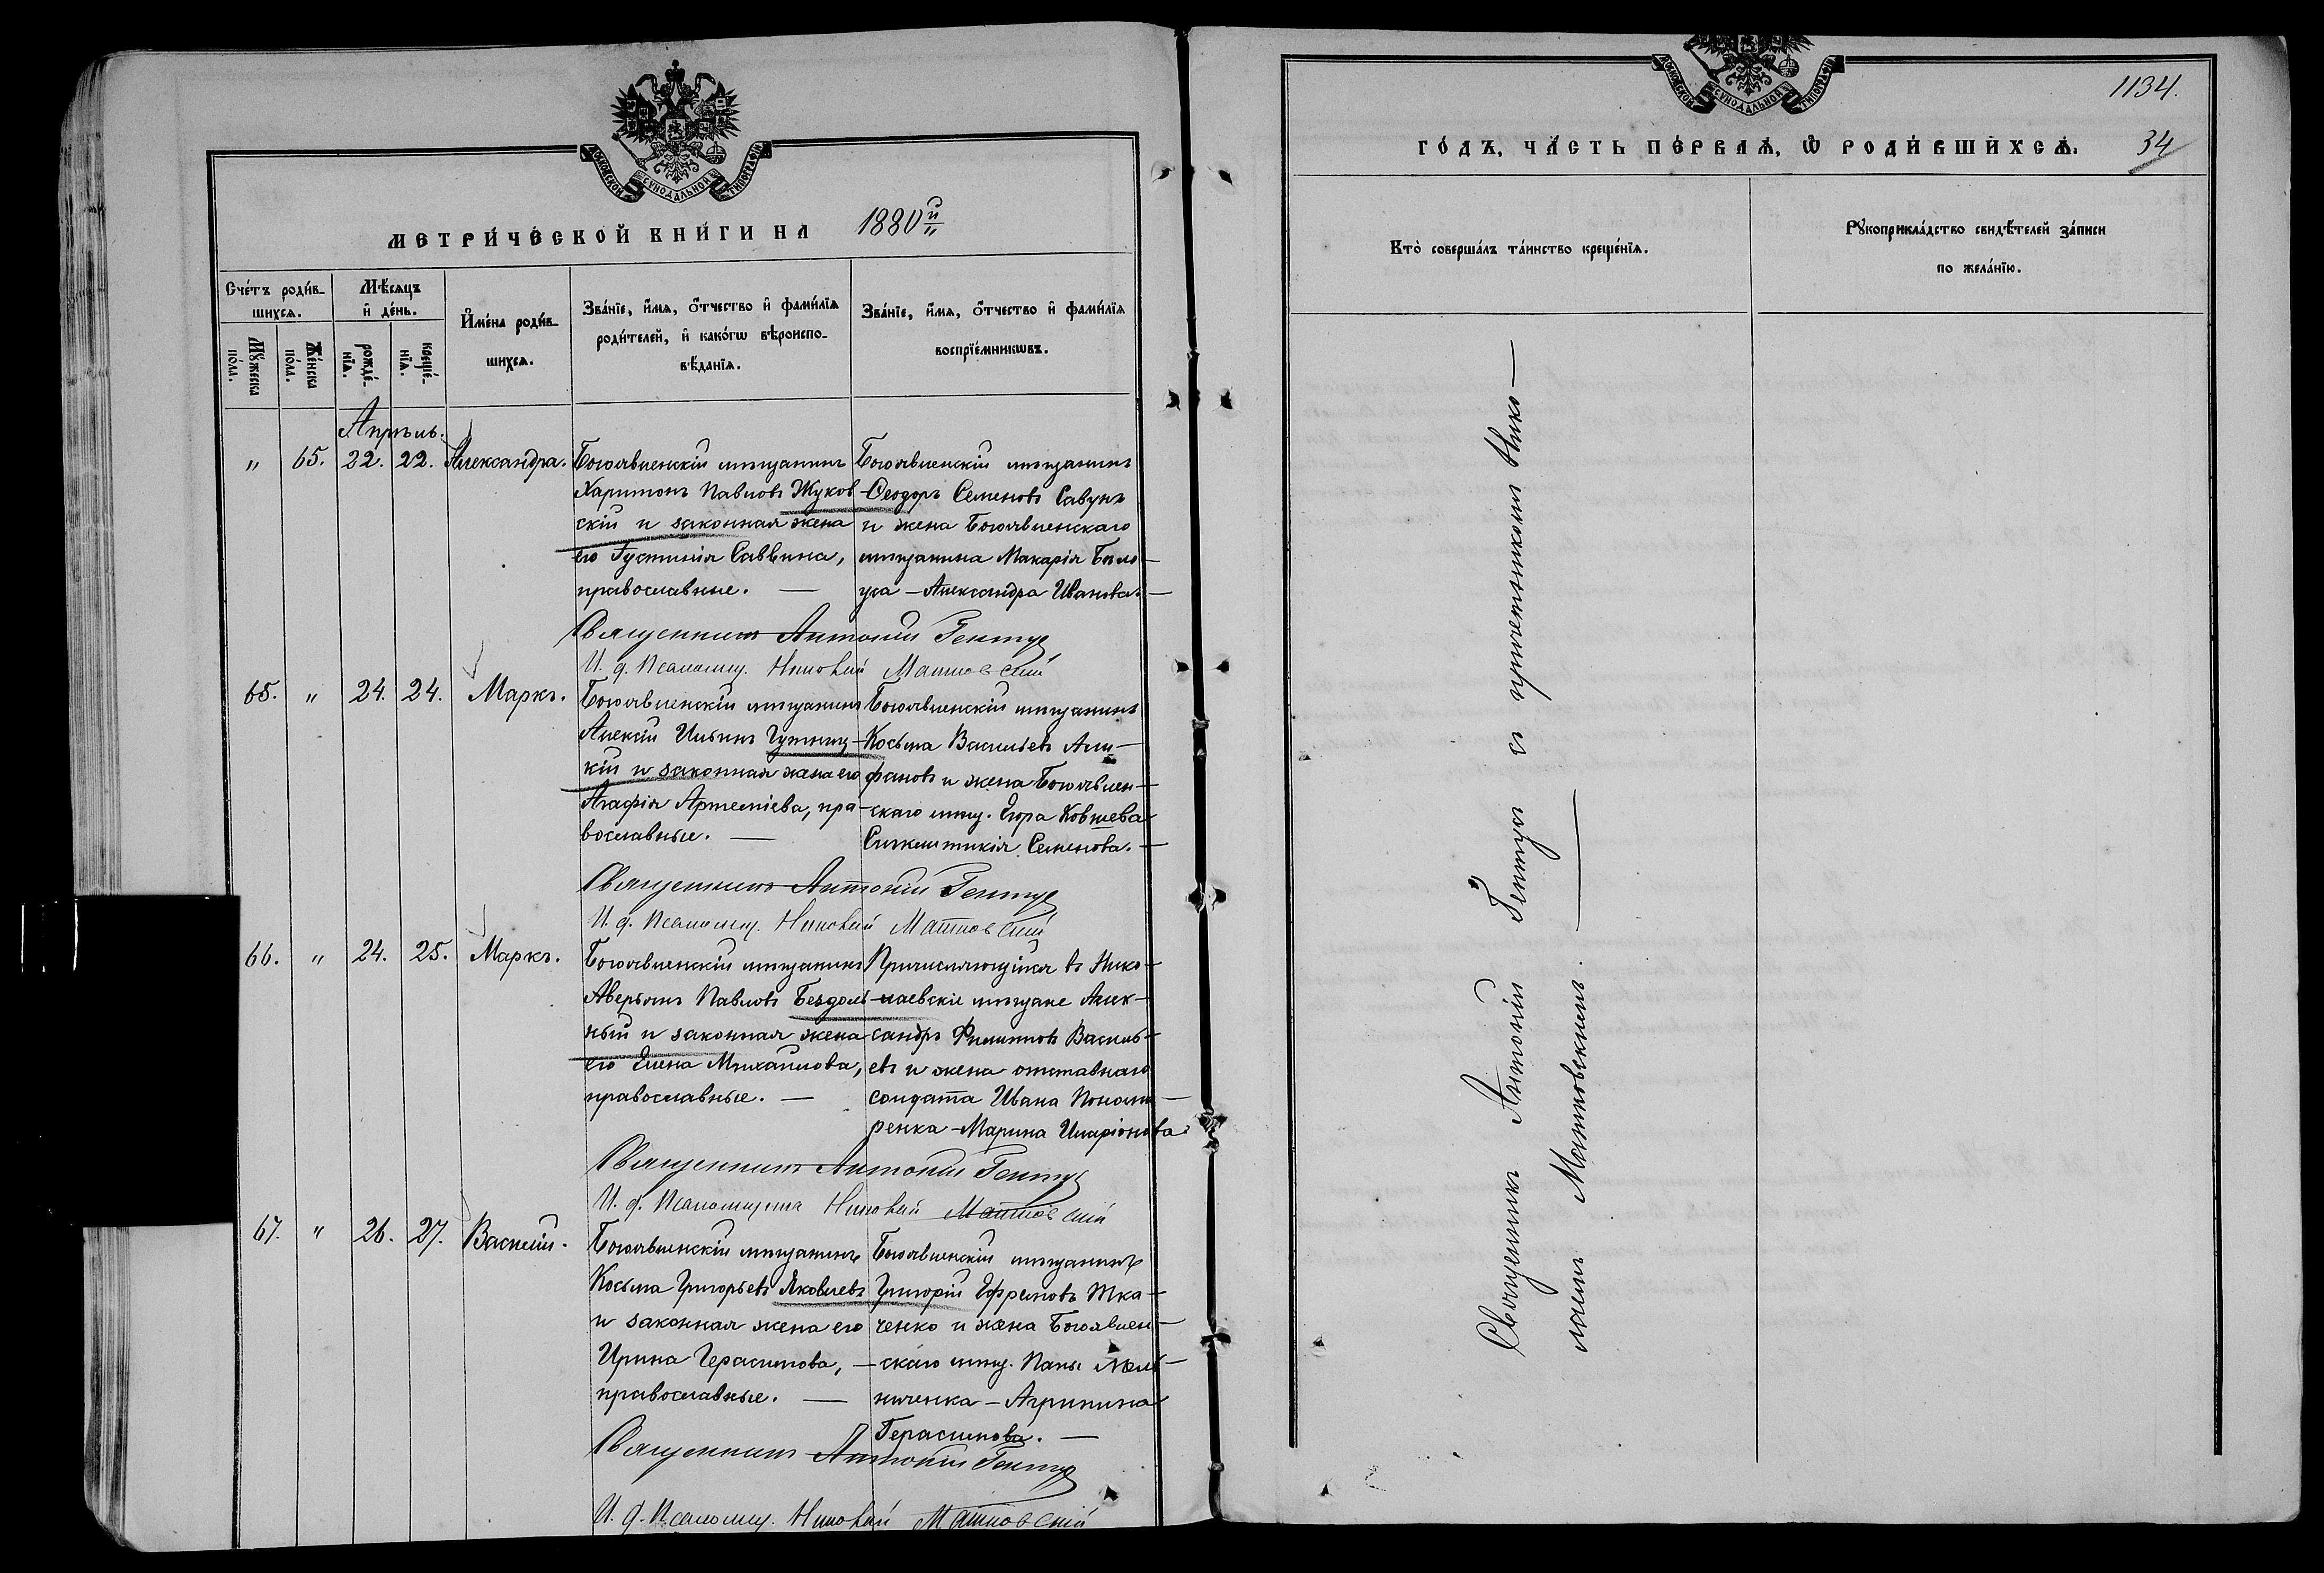 МОСКОВСКОЙ СѴНОДАЛЬНОЙ ТИПОГРАФІИ
МЕТРИ́ЧЕСКОЙ КНИ́ГИ НА 1880й
Сче́тъ роди́в-
шихся.
Мꙋ́жеска по́ла.
Же́нска по́ла.
Мѣ́сяцъ
и҆ де́нь.
рожде́-нїѧ.
креще́-нїѧ.
И҆мена̀ роди́в-
шихся.
Зва́нїе, и҆́мѧ, ѻ҆́тчество и҆ фами́лїѧ
роди́телей, и҆ како́гѡ вѣроиспо-
вѣ́данїѧ.
Зва́нїе, и҆́мѧ, ѻ҆́тчество и҆ фами́лїѧ
воспрїе́мникѡвъ.
Апрѣль.
" 65. 22. 22. Александра.
Богоявленскій мѣщанинъ
Харитонъ Павловъ Жуков-
скій и законная жена
его Іустинія Саввина,
православные. —
Богоявленскій мѣщанинъ
Ѳеодоръ Семеновъ Савунъ
и жена Богоявленскаго
мѣщанина Макарія Бѣло-
уса — Александра Иванова. —
Священникъ Антоній Гентуѣ
И. д. Псаломщ. Николай Матковскій
65. " 24. 24. Маркъ.
Богоявленскій мѣщанинъ
Алексій Ильинъ
кій и законная жена его
Агафія Артеміева, пра-
вославные. —
Богоявленскій мѣщанинъ
Косьма Васильевъ Али-
фановъ и жена Богоявлен-
скаго мѣщ. Егора Ковшева
Синклитикія Семенова. —
Священникъ Антоній
И. д. Псаломщ. Николай Матковскій
66. " 24. 25. Маркъ.
Богоявленскій мѣщанинъ
Аверьянъ Павловъ Бездоль-
ный и законная жена
его Елена Михаилова,
православные. —
Причисляющіися въ Нико-
лаевскіе мѣщане Алек-
сандръ Филиповъ Василь-
евъ и жена отставнаго
солдата Ивана Понома-
ренка — Марина Иларіонова
Священникъ Антоній
И. д. Псаломщика Николай Матковскій
67. " 26. 27. Василій.
Богоявленскій мѣщанинъ
Косьма Григорьевъ Яковлевъ
и законная жена его
Ирина Герасимова, —
православные. —
Богоявленскій мѣщанинъ
Григорій Ефремовъ Тка-
ченко и жена Богоявлен-
скаго мѣщ. Мель-
ниченка — Агрипина
Герасимова. —
Священникъ Антоній
И. д. Псаломщ. Николай Матковскій
МОСКОВСКОЙ СѴНОДАЛЬНОЙ ТИПОГРАФІИ
1134.
ГО́ДЪ, ЧА́СТЬ ПЕ́РВАѦ, Ѡ҆ РОДИ́ВШИХСѦ. 34
Кто̀ соверша́лъ та́инство креще́нїѧ.
Рꙋкоприкла́дство свидѣ́телей за́писи
по жела́нїю.
Священникъ Антоній съ причетникомъ Нико-
лаемъ Матковскимъ. —